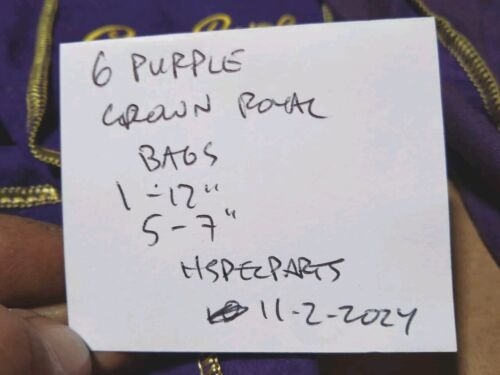 6 PURPLE
CROWN ROYAL
BAGS
1 - 12"
5 - 7"
HSPECPARTS
11-2-2024